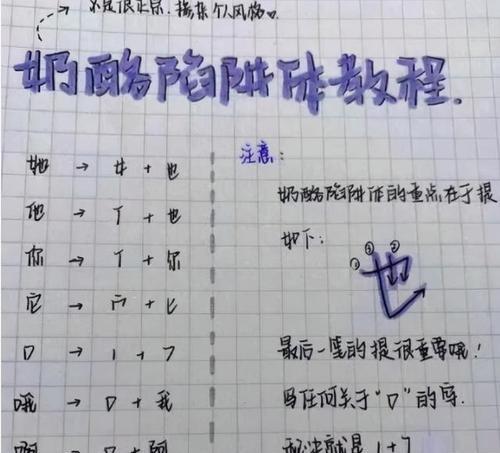 不是很正宗，掺杂个人风格。
奶酪陷阱体教程.
她 → 女 + 也
他 → 亻 + 也
你 → 亻 + 尔
它 → 宀 + 匕
口 → 丨 + ㇆
哦 → 口 + 我
啊 → 口 + 阿
注意：
奶酪陷阱体的重点在于提
如下：
① ③ ②
也
最后一笔的提很重要哦！
写任何关于“口”的字.
秘诀就是 1 + 7